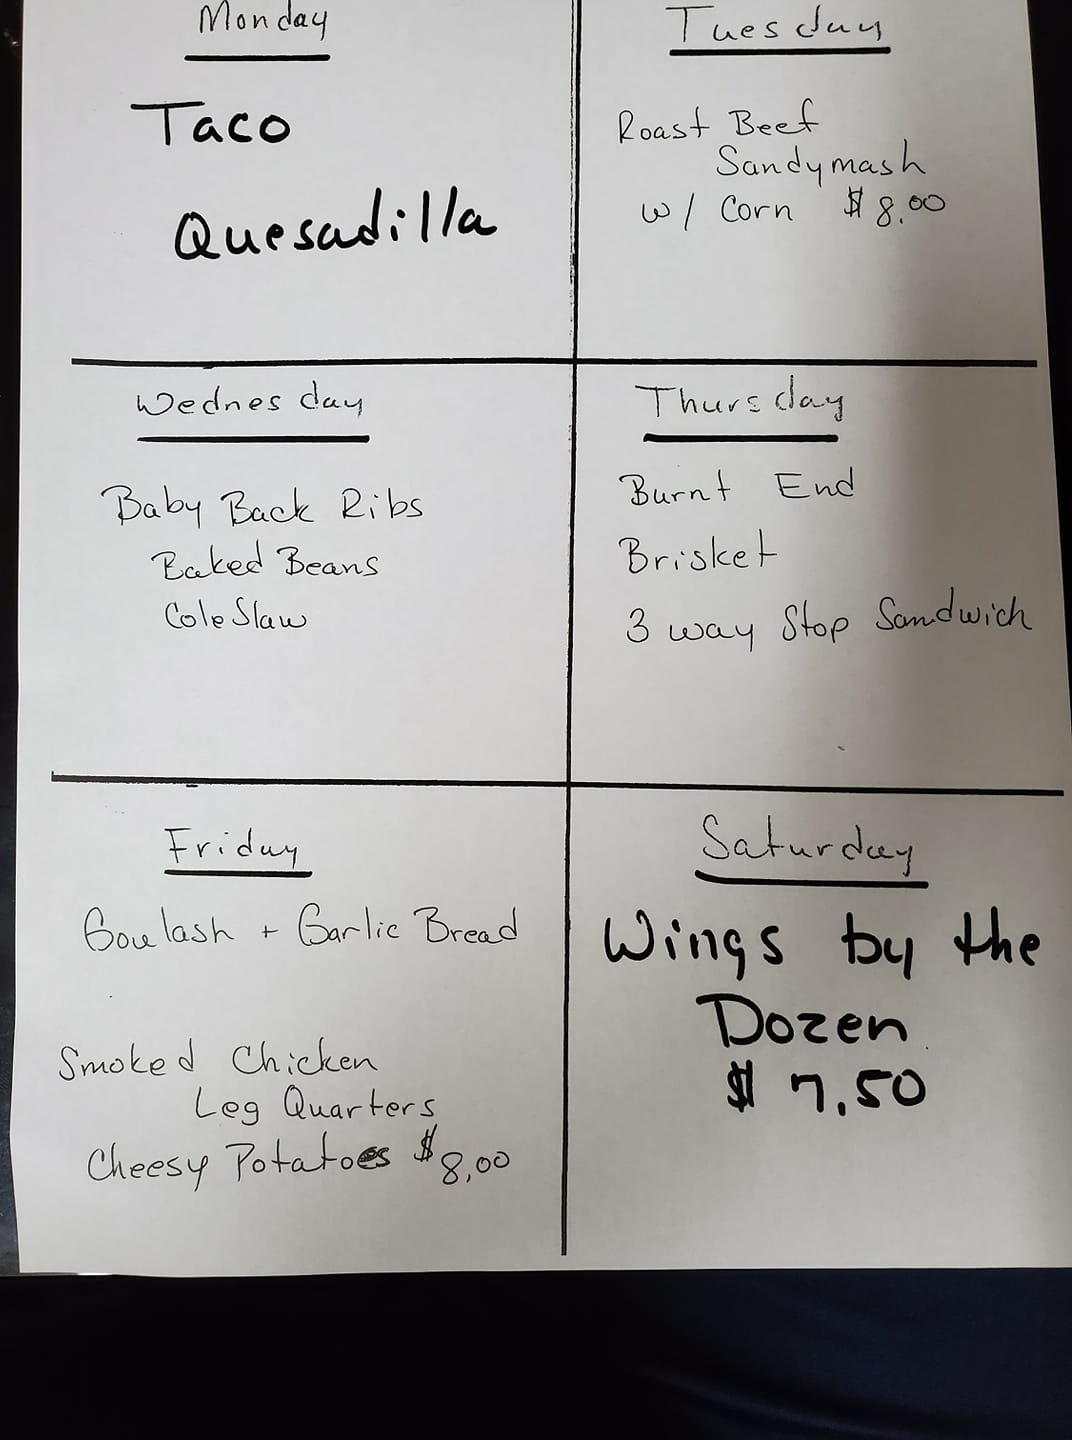 Monday
Taco
Quesadilla
Tuesday
Roast Beef
Sandymash
w/ Corn $8.00
Wednesday
Baby Back Ribs
Baked Beans
Cole Slaw
Thursday
Burnt End
Brisket
3 way Stop Sandwich
Friday
Goulash + Garlic Bread
Smoked Chicken
Leg Quarters
Cheesy Potatoes $8.00
Saturday
Wings by the
Dozen
$7.50